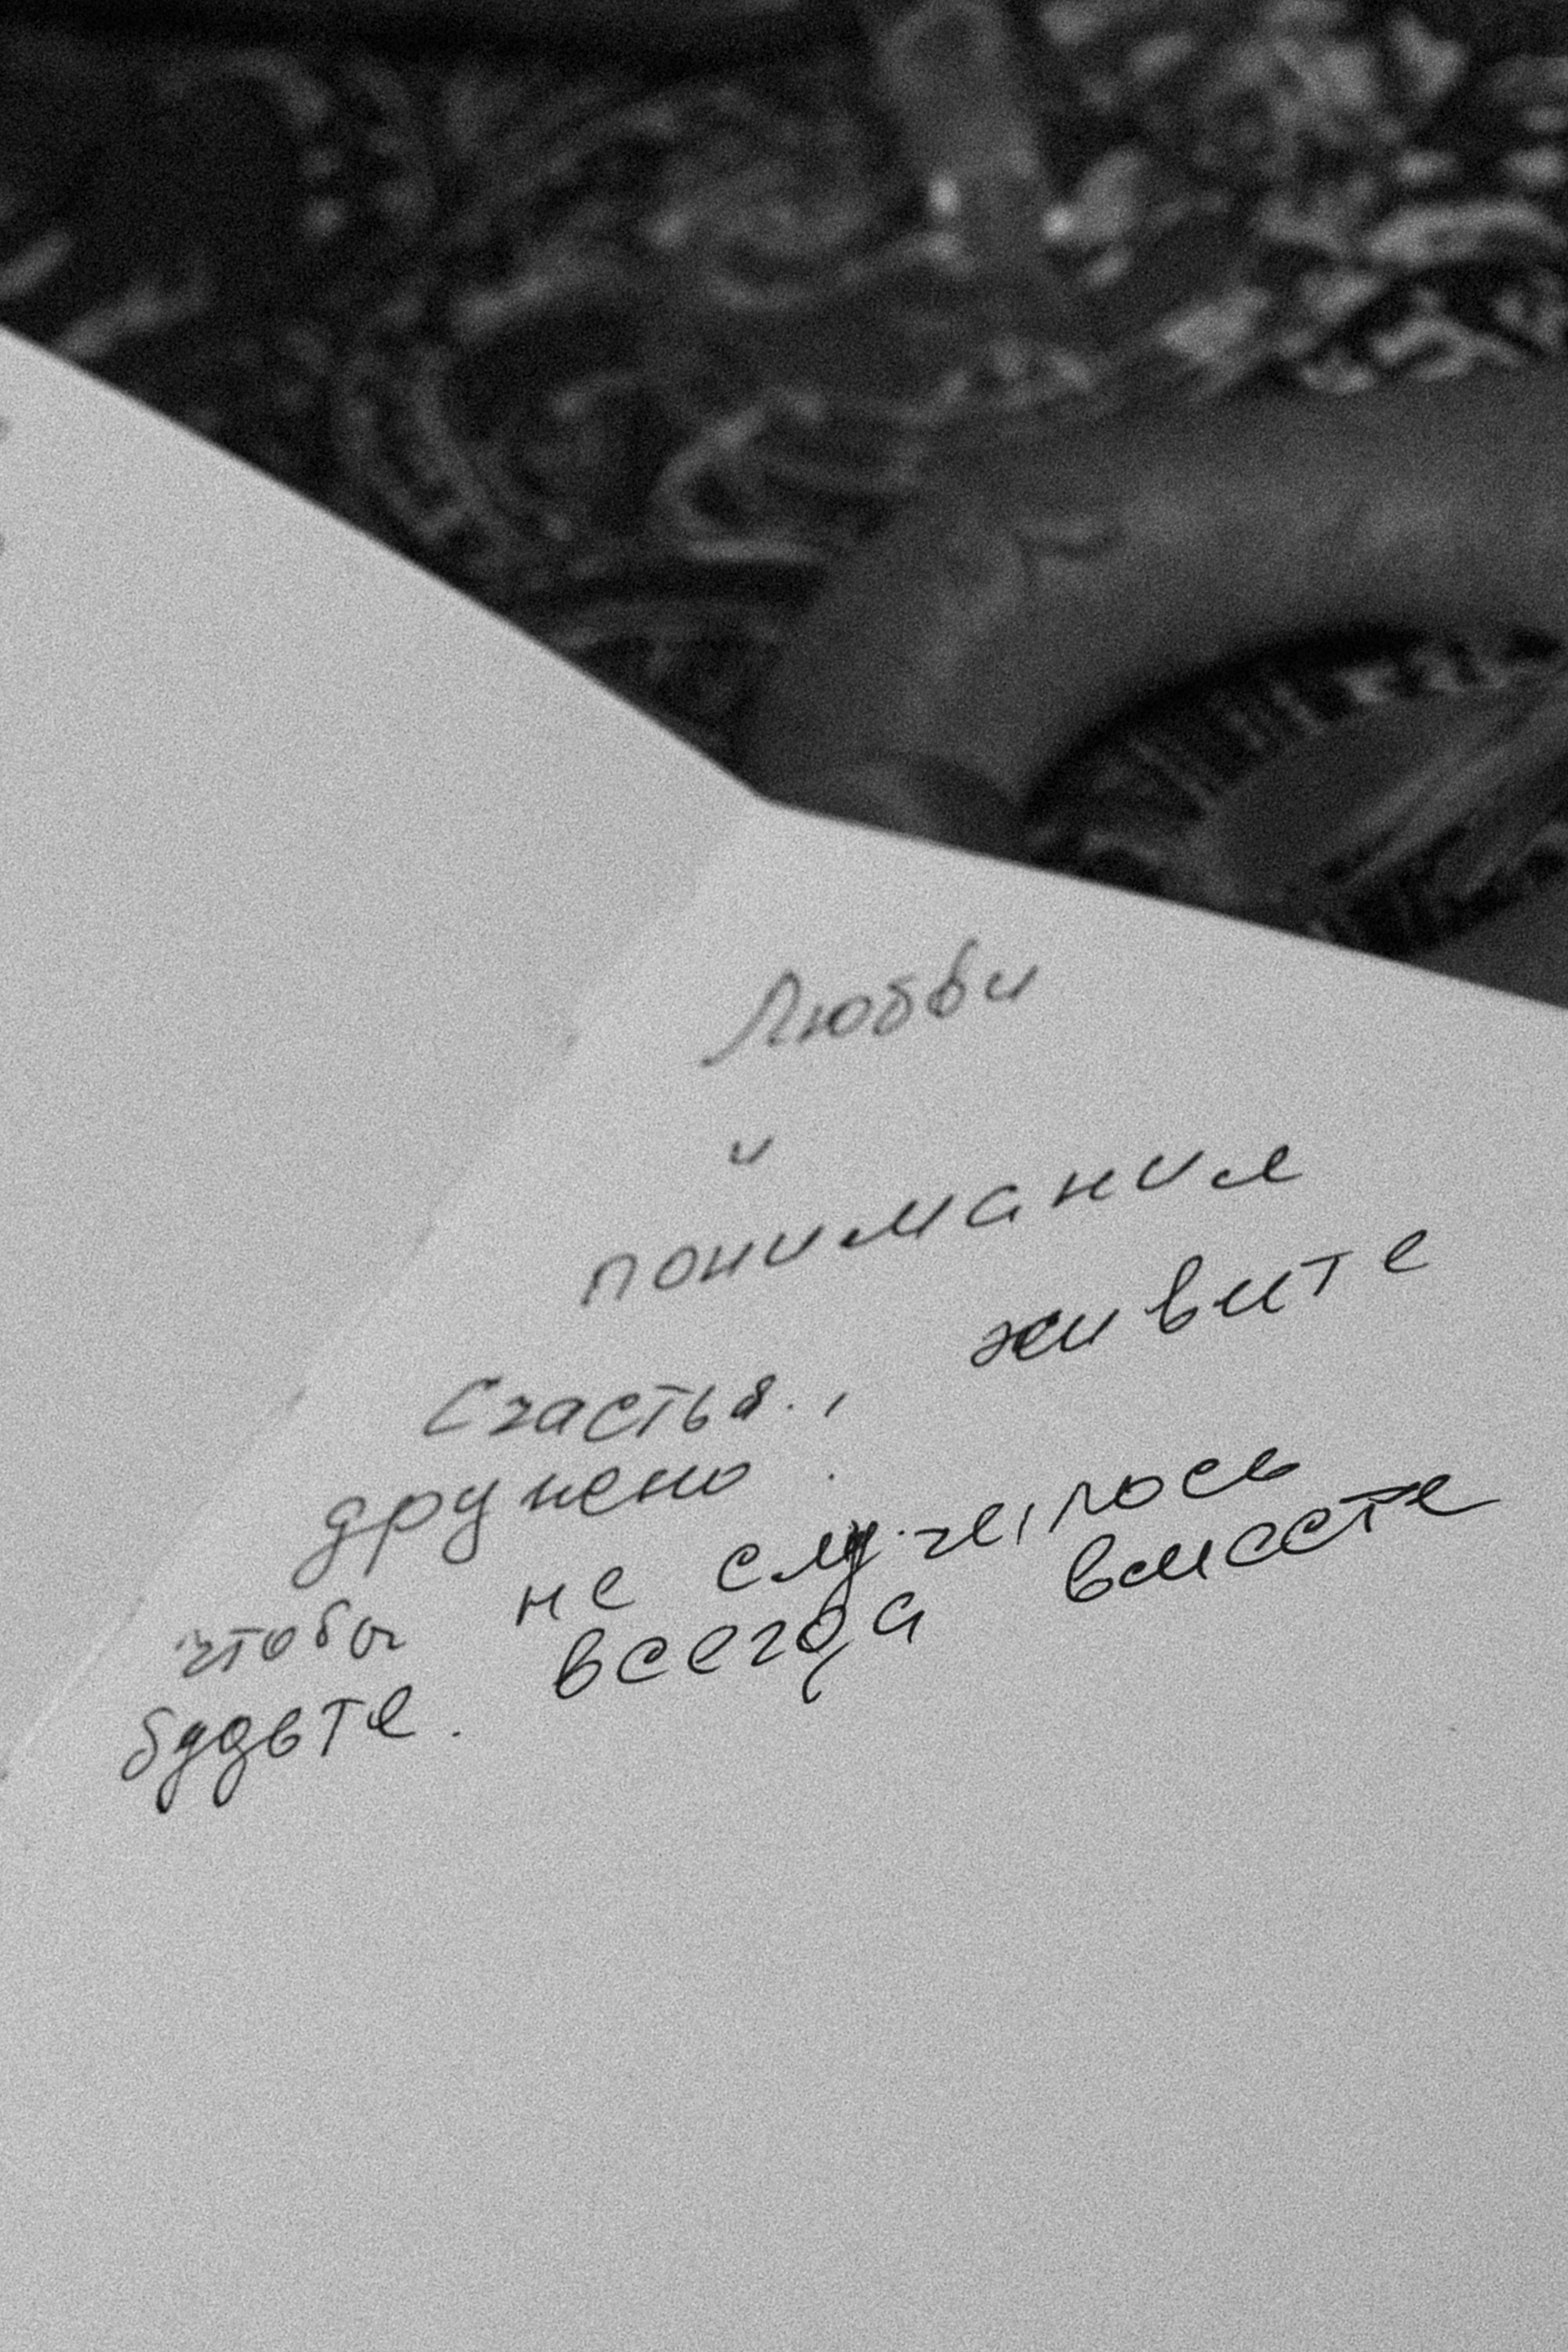 Любви
и
понимания
Счастья., живите
дружно.
чтобы не случилось
всегда вместе
будьте.